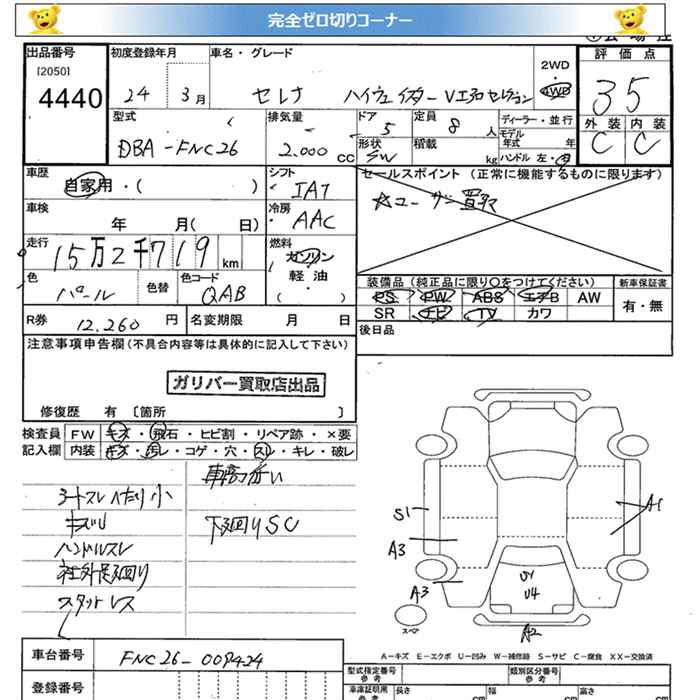 完全ゼロ切りコーナー
出品番号 初度登録年月 車名・グレード 2WD 評価点
[2050]
4440 24 3月 セレナ ハイウェイスター Vエアロセレクション 4WD 35
型式 排気量 ドア 定員 ディーラー・並行 外装 内装
DBA-FNC26 2.000 CC 5 8人 モデル年式 年 C C
形状 SW 積載 kg ハンドル 左・右
車歴 シフト セールスポイント (正常に機能するものに限ります)
自家用・( ) IAT ☆ユーザー買取
車検 年 月( 日) 冷房 AAC
走行 15万2千719km 燃料 ガソリン
軽油
( )
色 パール 色替 色コード QAB
装備品 (純正品に限り○をつけてください) 新車保証書
PS PW ABS エアB AW 有・無
SR ナビ TV カワ
R券 12,260円 名変期限 月 日 後日品
注意事項申告欄(不具合内容等は具体的に記入して下さい)
ガリバー買取店出品
修復歴 有 〔箇所 〕
検査員 FW キズ・飛石・ヒビ割・リペア跡・×要
記入欄 内装 キズ・汚レ・コゲ・穴・スレ・キレ・破レ
シートスレ ヘタリ小
キズU
ハンドルスレ
社外足廻り
スタットレス
車高ひくい
下廻りSC
S1
A3
A3
A1
U4
A2
スペア
A-キズ E-エクボ U-凹み W-補修跡 S-サビ C-腐食 XX-交換済
車台番号 FNC26-009424
登録番号
型式指定番号 参考 類別区分番号 参考
車庫証明用 参考 長さ cm 幅 cm 高さ cm